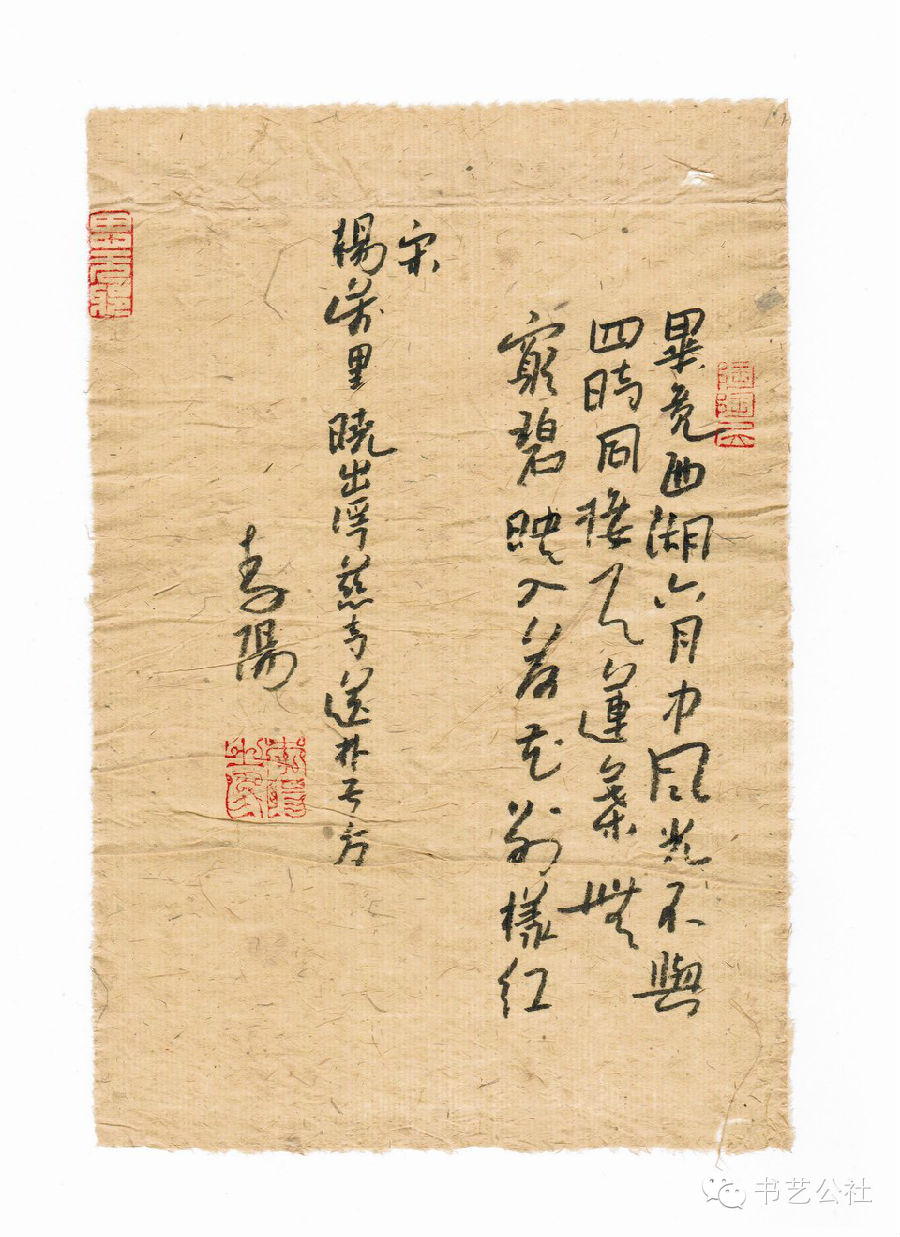 畢竟西湖六月中風光不與
四時同接天蓮葉無
窮碧映入荷花別樣紅
宋
楊萬里曉出淨慈寺送林子方
陽
书艺公社